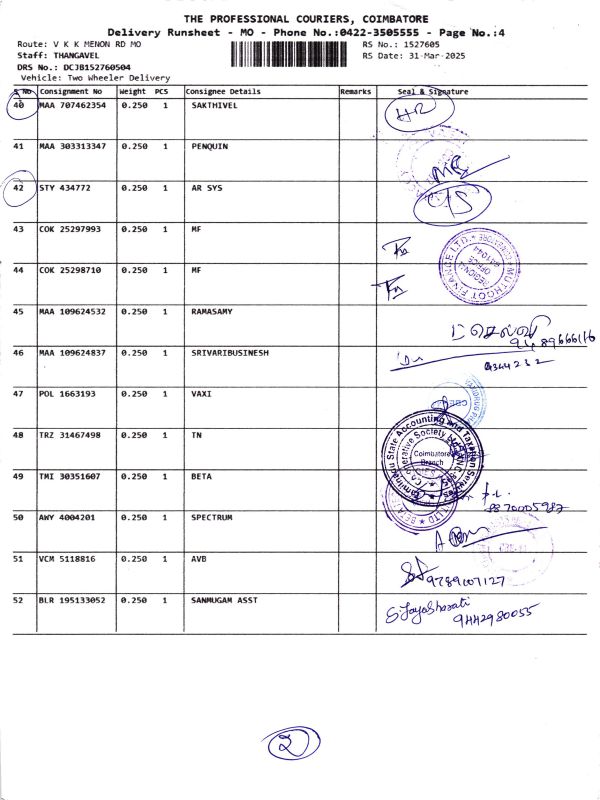 THE PROFESSIONAL COURIERS, COIMBATORE
Delivery Runsheet - MO - Phone No.:0422-3505555 - Page No.:4
Route: V K K MENON RD MO RS No.: 1527605
Staff: THANGAVEL RS Date: 31-Mar-2025
DRS No.: DCJB152760504
Vehicle: Two Wheeler Delivery
S No Consignment No Weight PCS Consignee Details Remarks Seal & Signature
40 MAA 707462354 0.250 1 SAKTHIVEL
41 MAA 303313347 0.250 1 PENQUIN
42 STY 434772 0.250 1 AR SYS
43 COK 25297993 0.250 1 MF
MUTHOOT FINANCE LTD.
REGIONAL OFFICE
44 COK 25298710 0.250 1 MF
45 MAA 109624532 0.250 1 RAMASAMY
46 MAA 109624837 0.250 1 SRIVARIBUSINESH
47 POL 1663193 0.250 1 VAXI
48 TRZ 31467498 0.250 1 TN
Tamilnadu State Accounting and Taxation Service
Coimbatore
Branch
49 TMI 30351607 0.250 1 BETA
50 AWY 4004201 0.250 1 SPECTRUM
51 VCM 5118816 0.250 1 AVB
9789007127
52 BLR 195133052 0.250 1 SANMUGAM ASST
S. Jayabharati
9442980055
2